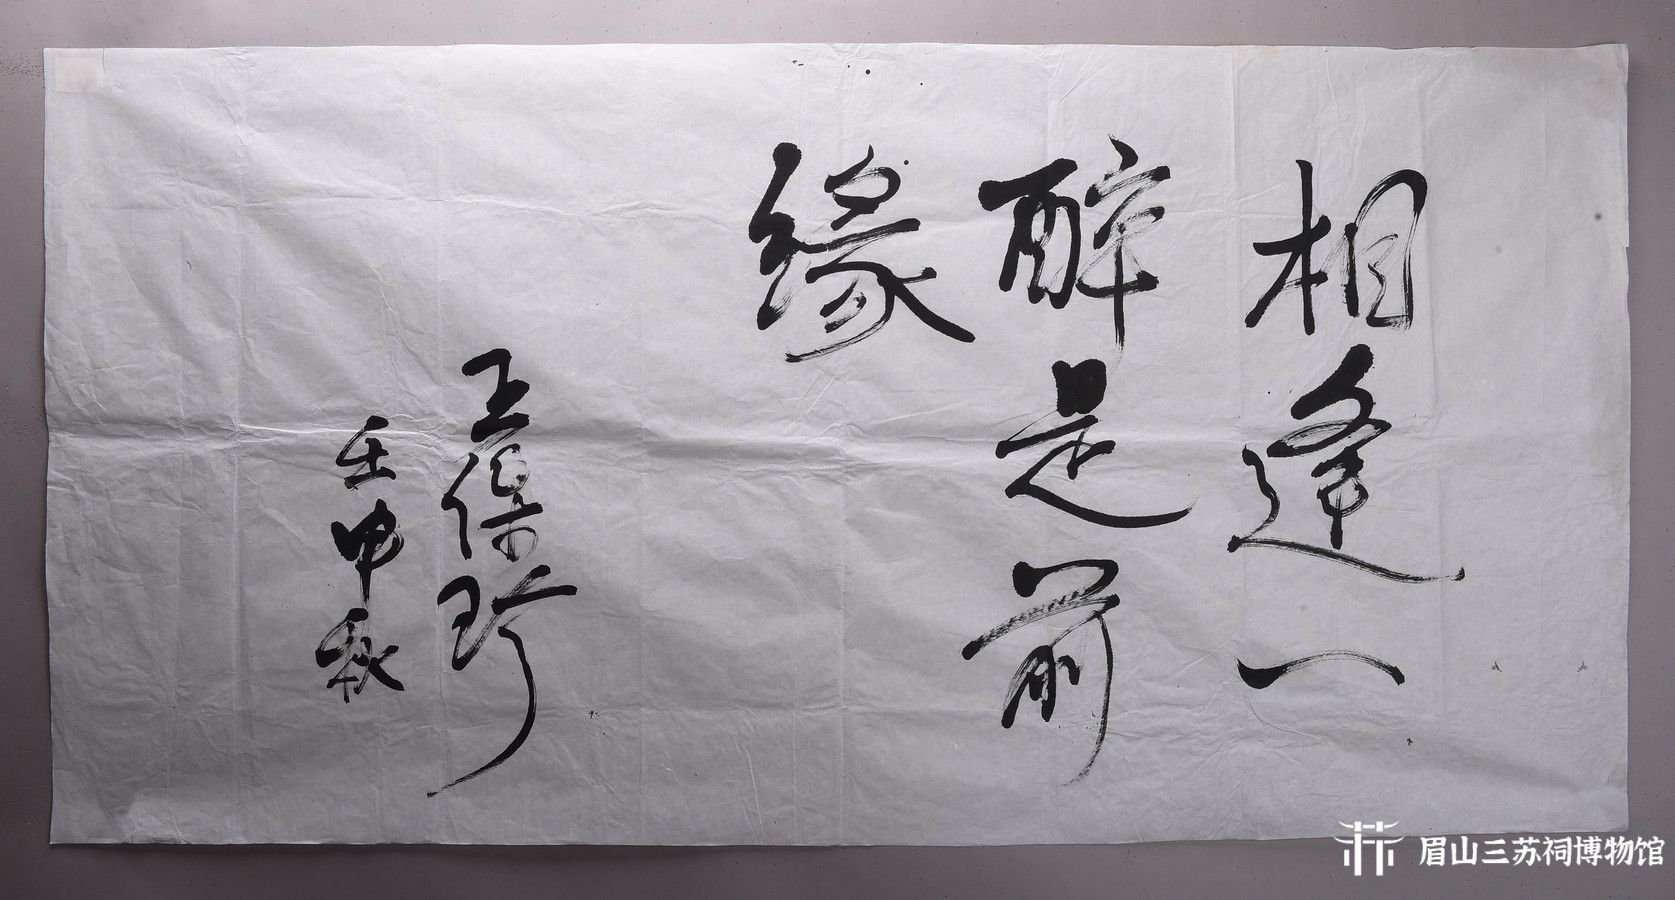 相逢一
醉是前
缘
王保
壬申秋
眉山三苏祠博物馆